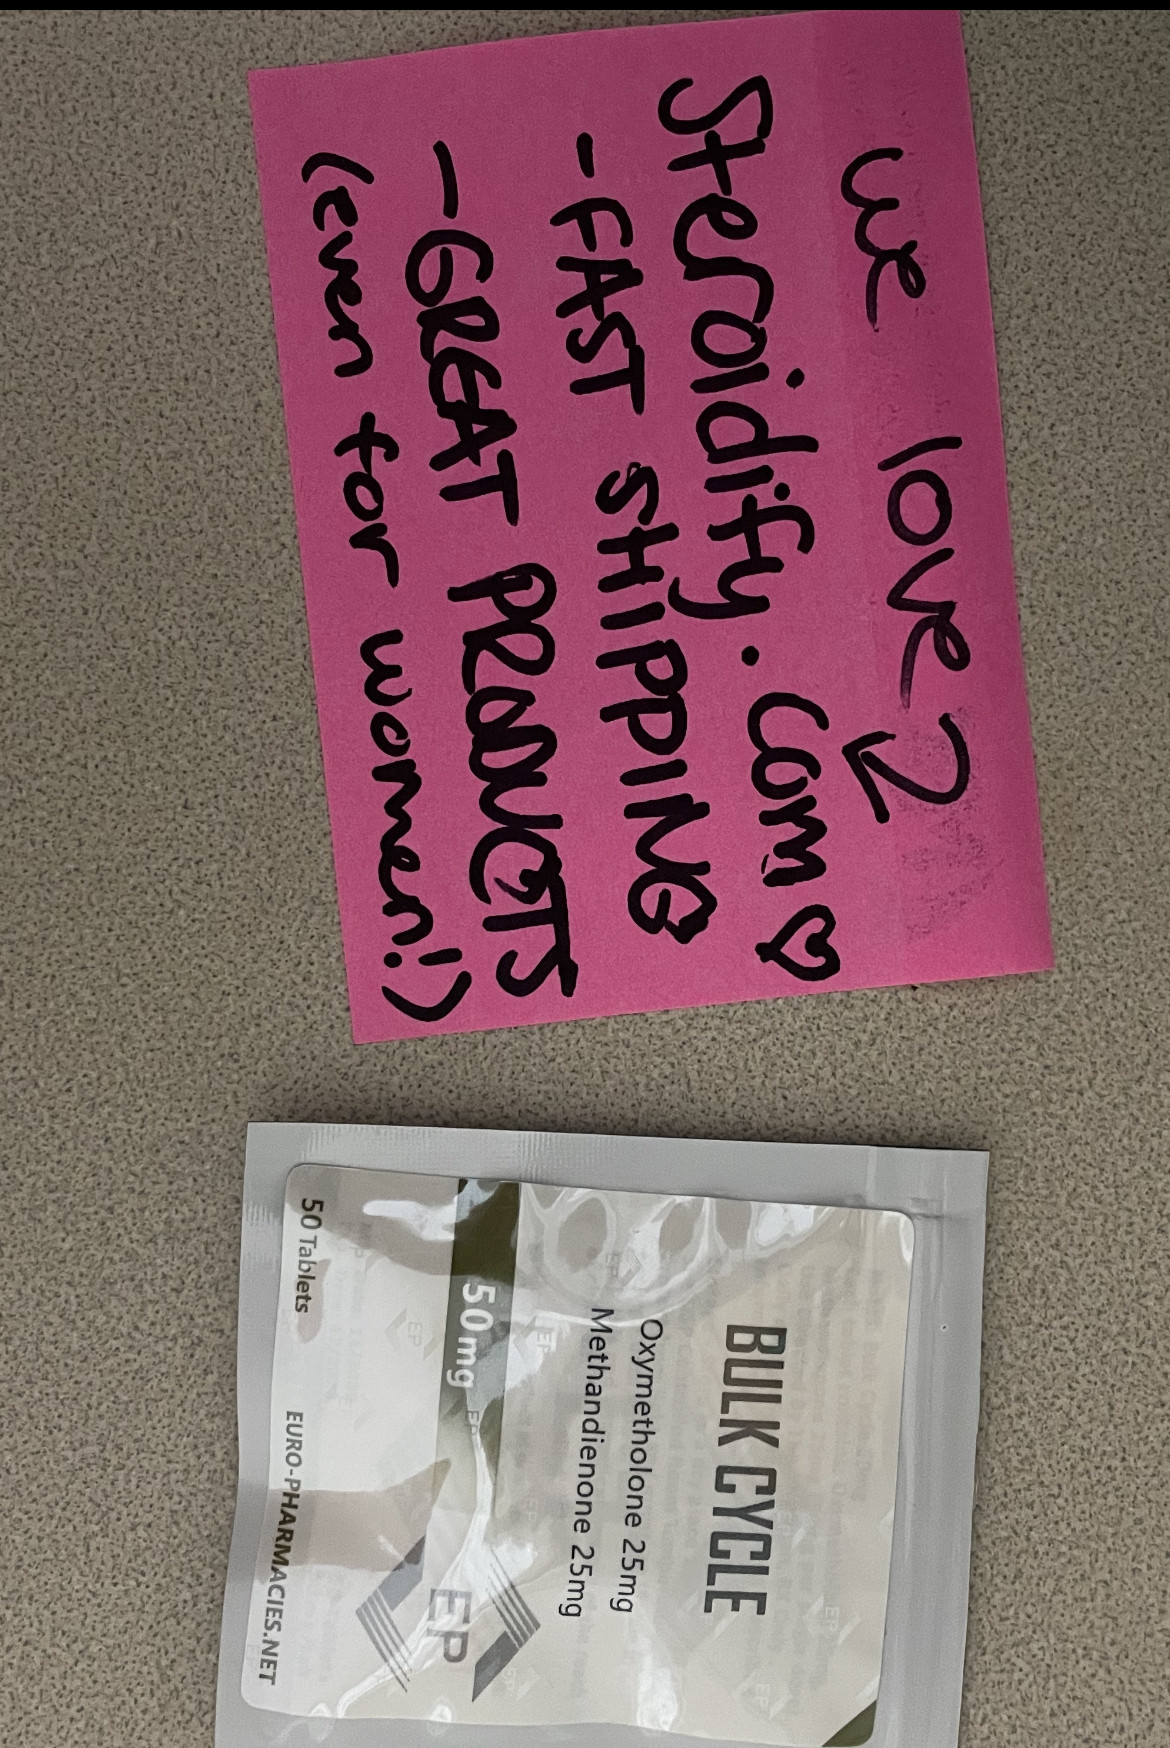 we love
Steroidify.com♡
-FAST SHIPPING
-GREAT PRODUCTS
(even for women!)
BULK CYCLE
Oxymetholone 25mg
Methandienone 25mg
50mg
EP
50 Tablets
EURO-PHARMACIES.NET